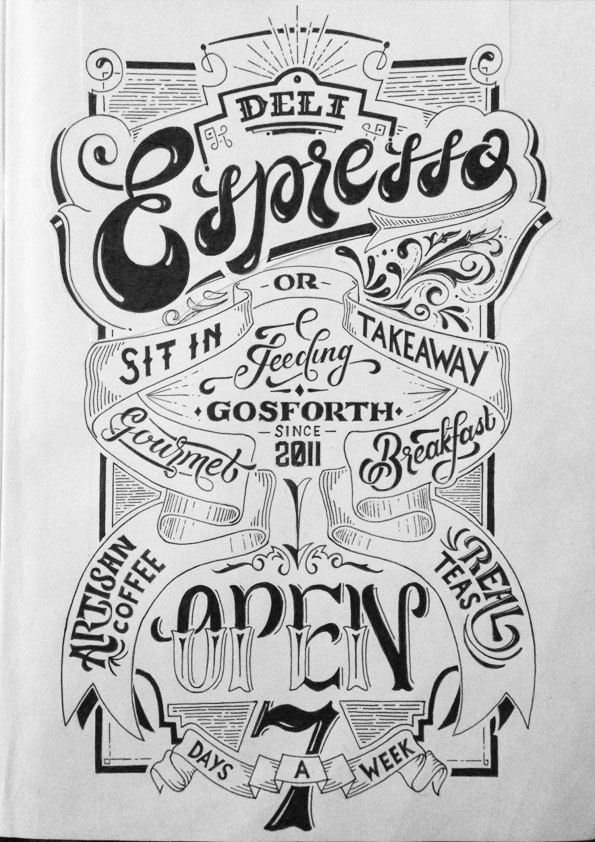 DELI
Espresso
SIT IN -OR- TAKEAWAY
Feeding
GOSFORTH
-SINCE-
2011
Gourmet Breakfast
ARTISAN
COFFEE
REAL
TEAS
OPEN
7
DAYS A WEEK